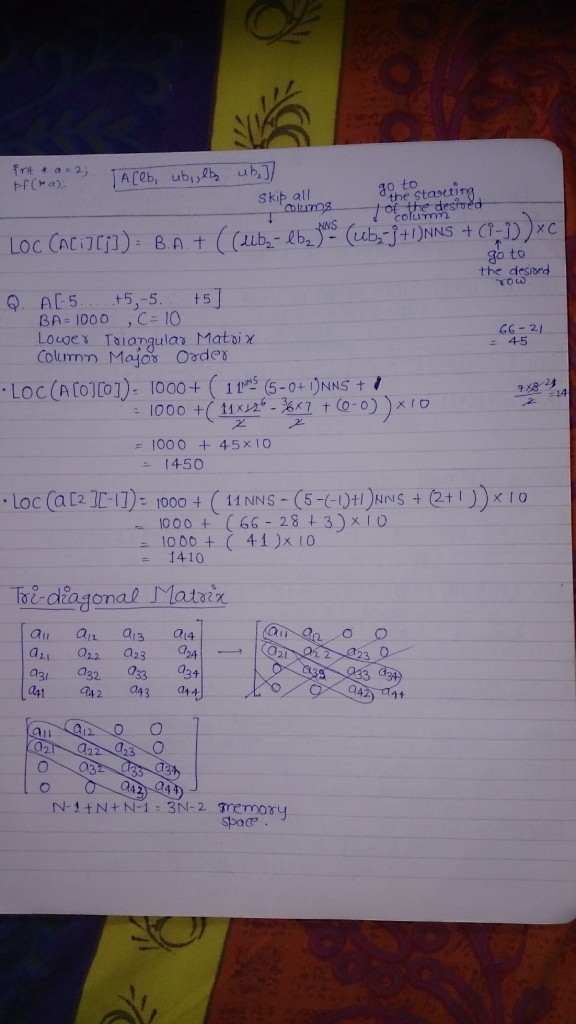 int * a = 2;
pf(*a);
[A[lb₁ ub₁, lb₂ ub₂]]
skip all colums
go to the starting of the desired column
LOC (A[i][j]) = B.A + ((ub₂ - lb₂)NNS - (ub₂-j+1)NNS + (i-j)) × C
go to the desired row
Q. A[-5.....+5, -5... +5]
BA = 1000 , C = 10
Lower Triangular Matrix
Column Major Order
66 - 21
= 45
• LOC (A[0][0]) = 1000 + ( 11NNS - (5-0+1)NNS +
= 1000 + ( 11×12/2 - 6×7/2 + (0-0) ) × 10
= 1000 + 45×10
= 1450
• LOC (a[2][-1]) = 1000 + ( 11 NNS - (5-(-1)+1) NNS + (2+1) ) × 10
= 1000 + ( 66 - 28 + 3 ) × 10
= 1000 + ( 41 ) × 10
= 1410
Tri-diagonal Matrix
a11 a12 a13 a14 → a11 a12 0 0
a21 a22 a23 a24 a21 a22 a23 0
a31 a32 a33 a34 0 a32 a33 a34
a41 a42 a43 a44 0 0 a42 a44
a11 a12 0 0
a21 a22 a23 0
0 a32 a33 a34
0 0 a43 a44
N-1+N+N-1 = 3N-2 memory space.